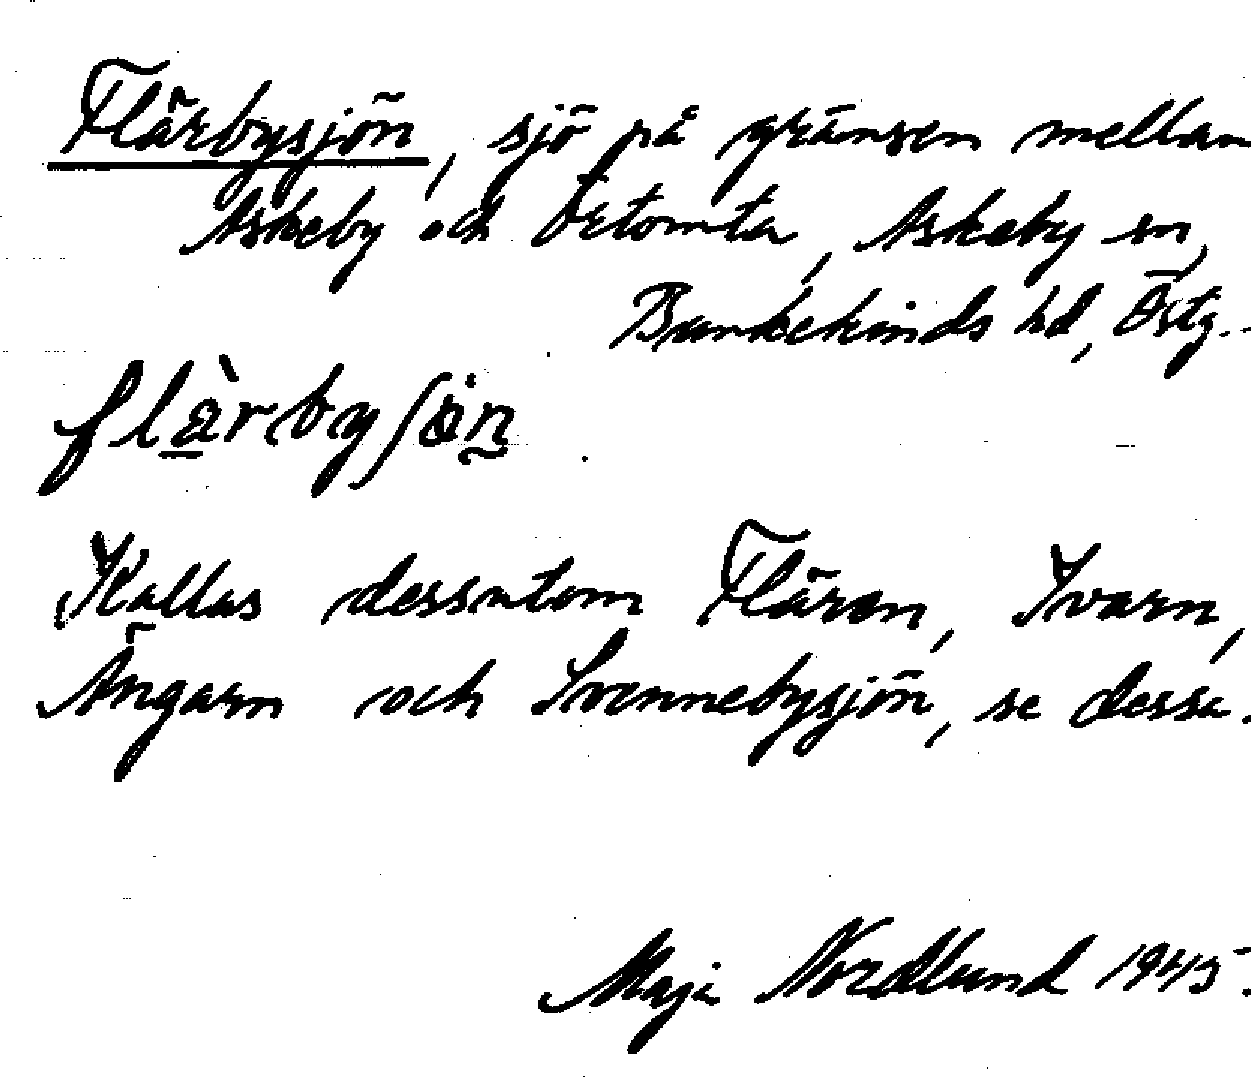 Flärbysjön, sjö på gränsen mellan
Askeby och Örtomta, Askeby sn,
Bankekinds hd, Östg.
flàrbyʃön
Kallas dessutom Fläran, Svarn,
Ängarn och Svennebysjön, se dessa.
Maja Nordlund 1945.